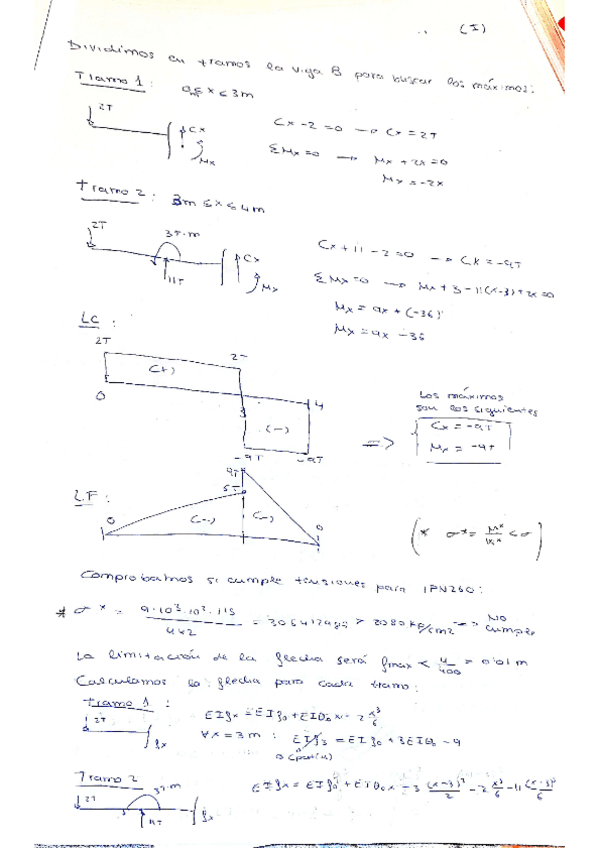 (I)
Dividimos en tramos la viga B para buscar los máximos:
Tramo 1: 0 ≤ x ≤ 3m
2T
Cx
Mx
Cx - 2 = 0 → Cx = 2T
ΣMx = 0 → Mx + 2x = 0
Mx = -2x
Tramo 2: 3m ≤ x ≤ 4m
2T
3T·m
11T
Cx
Mx
Cx + 11 - 2 = 0 → Cx = -9T
ΣMx = 0 → Mx + 3 - 11(x-3) + 2x = 0
Mx = 9x + (-36)
Mx = 9x - 36
LC:
2T
2T
(+)
0
3
4
(-)
-9T
-9T
=>
Los máximos
son los siguientes
Cx = -9T
Mx = -9T
LF:
9T
6T
0
(-)
(-)
0
(* σ* = M*/W* < σ)
Comprobamos si cumple tensiones para IPN260:
* σ* = 9·10³·10²·1'15 / 442 = > 2080 kg/cm2 → NO cumple
La limitación de la flecha será fmax < 4/400 = 0'01m
Calculamos la flecha para cada tramo:
Tramo 1:
2T
fx
EIfx = EIf0 + EIθ0x - 2 x³/6
∀x = 3m : EIf3 = EIf0 + 3EIθ0 - 9
Tramo 2
2T
3T·m
3
11T
fx
EIfx = EIf0 + EIθ0x - 3 (x-3)²/2 - 2 x³/6 - 11 (x-3)³/6